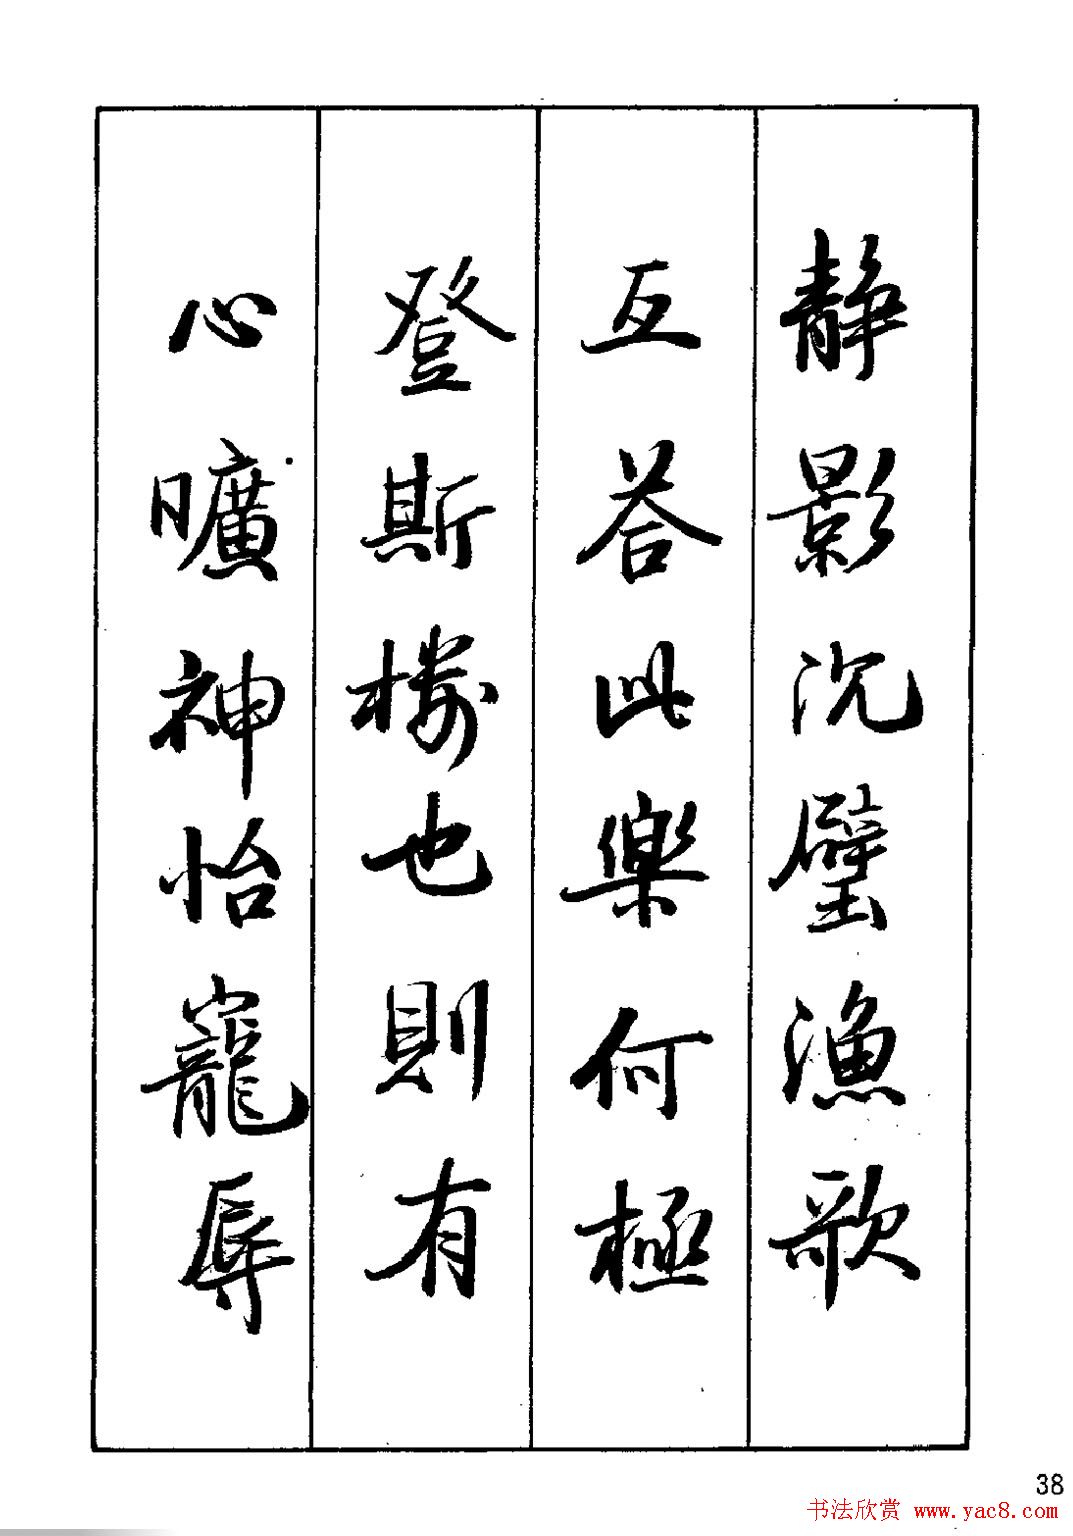 静影沉璧漁歌
互答此樂何極
登斯樓也則有
心曠神怡寵辱
38
书法欣赏 www.yac8.com